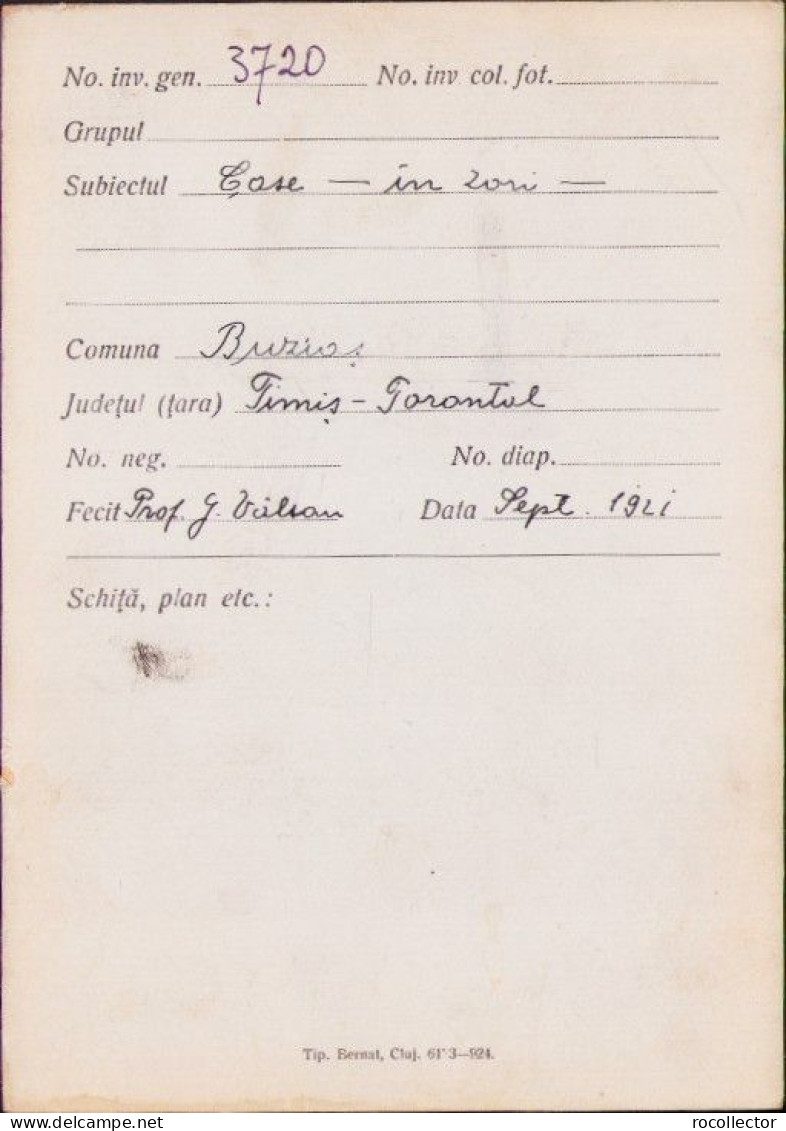 No. inv. gen. 3720 No. inv. col. fot.
Grupul
Subiectul Case — în zori —
Comuna Buziaș
Județul (țara) Timiș - Torontal
No. neg. No. diap.
Fecit Prof. G. Vâlsan Data Sept. 1921
Schiță, plan etc.:
Tip. Bernat, Cluj. 3—924.
rocollector